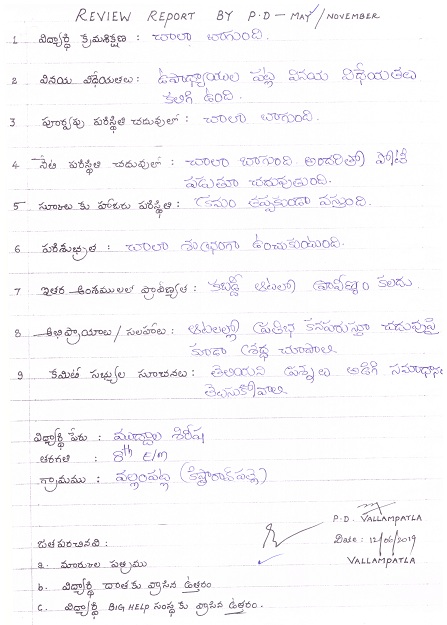 REVIEW REPORT BY P.D – MAY/NOVEMBER
1 విద్యార్థి క్రమశిక్షణ : చాలా బాగుంది.
2 వినయ విధేయతలు : ఉపాధ్యాయుల పట్ల వినయ విధేయతలు
కలిగి ఉంది.
3 పూర్వపు పరిస్థితి చదువులో : చాలా బాగుంది.
4 నేటి పరిస్థితి చదువులో : చాలా బాగుంది. అందరితో పోటీ
పడుతూ చదువుతుంది.
5 స్కూలు కు హాజరు పరిస్థితి : క్రమం తప్పకుండా వస్తుంది.
6 పరిశుభ్రత : చాలా శుభ్రంగా ఉంచుకుంటుంది.
7 ఇతర అంశములలో ప్రావీణ్యత : కబడ్డీ ఆటలో ప్రావీణ్యం కలదు.
8 అభిప్రాయాలు / సలహాలు : ఆటలల్లో ప్రతిభ కనపరుస్తూ చదువుపై
కూడా శ్రద్ధ చూపాలి
9 కమిటి సభ్యుల సూచనలు : తెలియని ప్రశ్నలు అడిగి సమాధానం
తెలుసుకోవాలి.
విద్యార్థి పేరు : ముద్దాల శిరీష
తరగతి : 8th E/m
గ్రామము : వల్లంపట్ల (కిష్టారావ్ పల్లె)
P.D. VALLAMPATLA
Date: 12/06/2019
VALLAMPATLA
జతపరచినవి :
a. మార్కుల పత్రము
b. విద్యార్థి దాతకు వ్రాసిన ఉత్తరం
c. విద్యార్థి BIG HELP సంస్థకు వ్రాసిన ఉత్తరం.